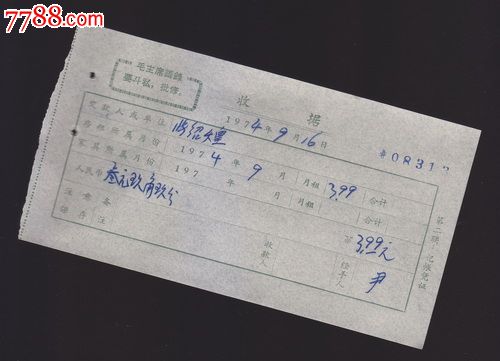 7788.com
毛主席语录
要斗私,批修。
收 据
1974年9月16日
0831
交款人或单位
房租所属月份 1974年9月 月租 3.99 合计
家具所属月份 197 年 月 月租 合计
人民币 叁元玖角玖分 3.99元
注意保存
备注
收款人
经手人 尹
第二联:记帐凭证
7788.com